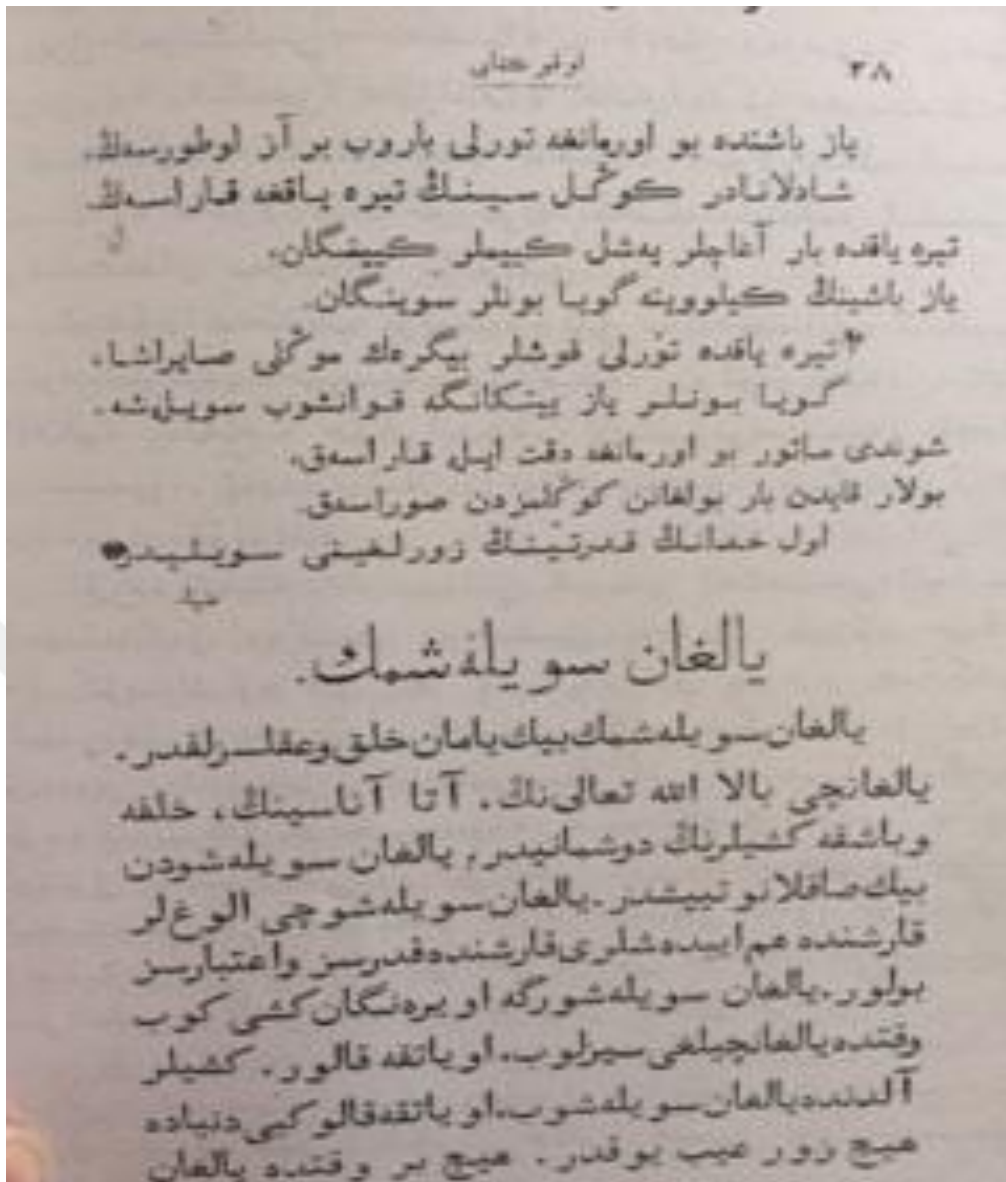 اوقو کتابی ٣٨
یاز باشنده بو اورمانغه تورلی باروب بر آز اوطورسەڭ
شادلانادر کوڭل سینڭ تیره یاقغه قاراسەڭ
تیره یاقده بار آغاچلر یەشل کییملر کییەنگان،
یاز باشینڭ کیلووینه گویا بونلر سوینگان.
تیره یاقده تورلی قوشلر بیگرەك موڭلی صایراشا،
گویا بونلر یاز ییتکانگه قوانشوب سویلەشه.
شوندی ماتور بو اورمانغه دقت ایله قاراسەق،
بولار قایدن بار بولغانن کوڭلمزدن صوراسەق
اول خدانڭ قدرتینڭ زورلغینی سویلیدر
یالغان سویلەشمك.
یالغان سویلەشمك بیك یامان خلق وعقلسزلقدر.
یالغانچی بالا الله تعالی‌نڭ، آتا آناسینڭ، خلفه
وباشقه کشیلرنڭ دوشمانیدر، یالغان سویلەشودن
بیك صاقلانو تییشدر. یالغان سویلەشوچی الوغ‌لر
قارشنده هم ایبدەشلری قارشنده قدرسز واعتبارسز
بولور. یالغان سویلەشورگه اویرەنگان کشی کوب
وقتده یالغانچیلغی سیزلوب، اویاتقه قالور. کشیلر
آلدنده یالغان سویلەشوب، اویاتقه قالو کبی دنیاده
هیچ زور عیب یوقدر. هیچ بر وقتده یالغان